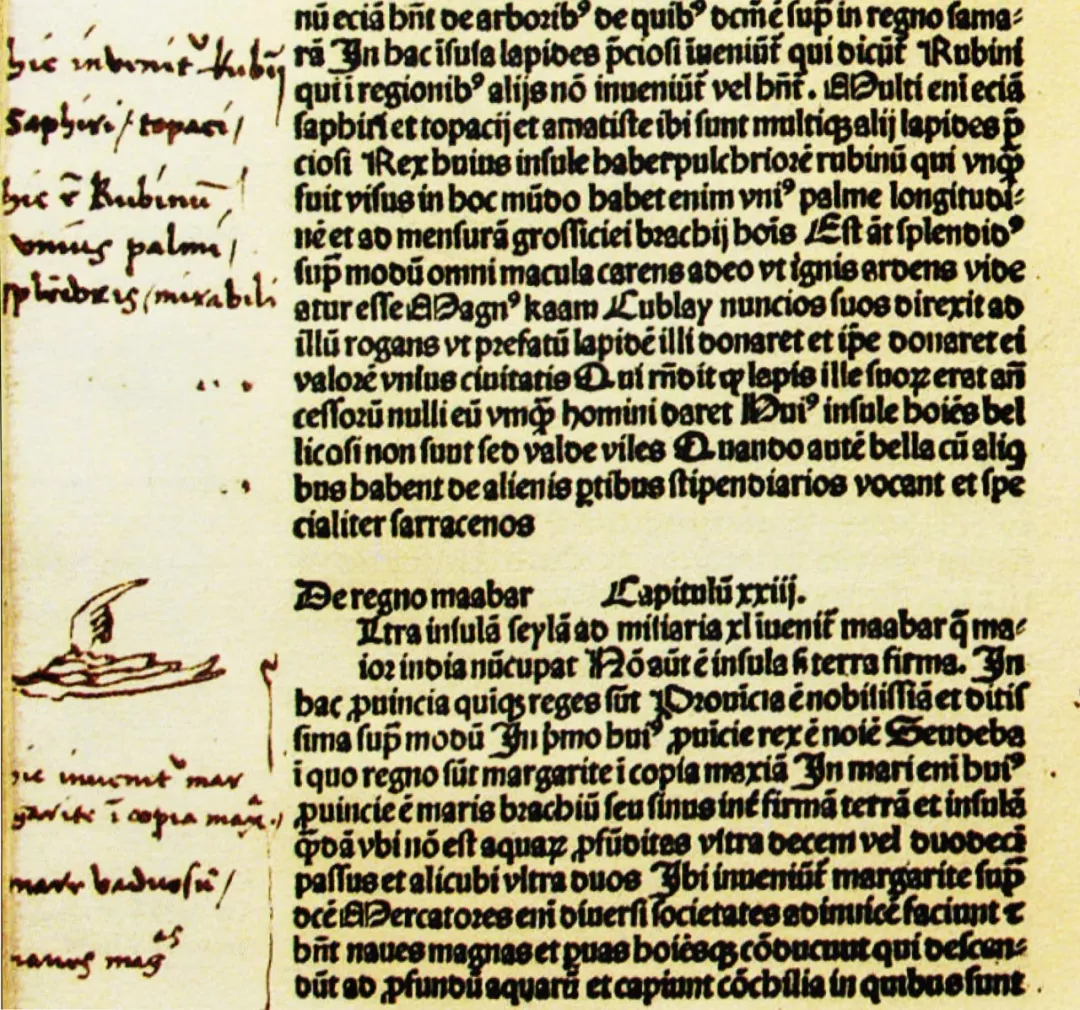 nū eciā bñt de arborib⁹ de quib⁹ dcm̄ ē sup̄ in regno sama⸗
rā In hac īsula lapides p̄ciosi īueniūt̄ qui dicūt̄ Rubini
qui ī regionib⁹ alijs nō inueniūt̄ vel hñt. Multi eni eciā
saphiri et topacij et amatiste ibi sunt multiqꝫ alij lapides p̄
ciosi Rex huius insule habet pulchriorē rubinū qui vnq̄ꝫ
fuit visus in hoc mūdo habet enim vni⁹ palme longitudi⸗
nē et ad mensurā grossiciei brachij hoīs Est āt splendid⁹
sup̄ modū omni macula carens adeo vt ignis ardens vide
atur esse Magn⁹ kaam Cublay nuncios suos direxit ad
illū rogans vt prefatū lapidē illi donaret et ip̄e donaret ei
valorē vnius ciuitatis Qui rn̄dit ꝙ lapis ille suoꝝ erat añ
cessorū nulli eū vmq̄ꝫ homini daret Hui⁹ insule hoiēs bel
licosi non sunt sed valde viles Quando autē bella cū aliq
bus habent de alienis ꝑtibus stipendiarios vocant et spe
cialiter sarracenos
De regno maabar Capitulū xxiij.
Ltra insulā seylā ad miliaria xl īuenit̄ maabar q̄ ma⸗
ior india nūcupat Nō aūt ē insula sꝫ terra firma. In
hac ꝓuincia quiqꝫ reges sūt Prouīcia ē nobilissīa et ditis
sima sup̄ modū In p̄mo hui⁹ ꝓuīcie rex ē noīe Sendeba
ī quo regno sūt margarite ī copia maxīā In mari eni hui⁹
ꝓuincie ē maris brachiū seu sinus int̄ firmā terrā et insulā
q̄dā vbi nō est aquaꝝ ꝓfūditas vltra decem vel duodecī
passus et alicubi vltra duos Ibi inueniūt̄ margarite sup̄
dcē Mercatores eni diuersi societates adinuicē faciunt ⁊
hñt naues magnas et ꝑuas hoiēsqꝫ cōducunt qui descen⸗
dūt ad ꝓfundū aquarū et capiunt cōchilia in quibus sunt
hic inveniūt Rubij
saphiri / topaci /
hic ē Rubinū
vnius palmi /
splēdoris / mirabili
hic inueniūt mar
garite ī copia max.
mare vaduosū /
naues mag